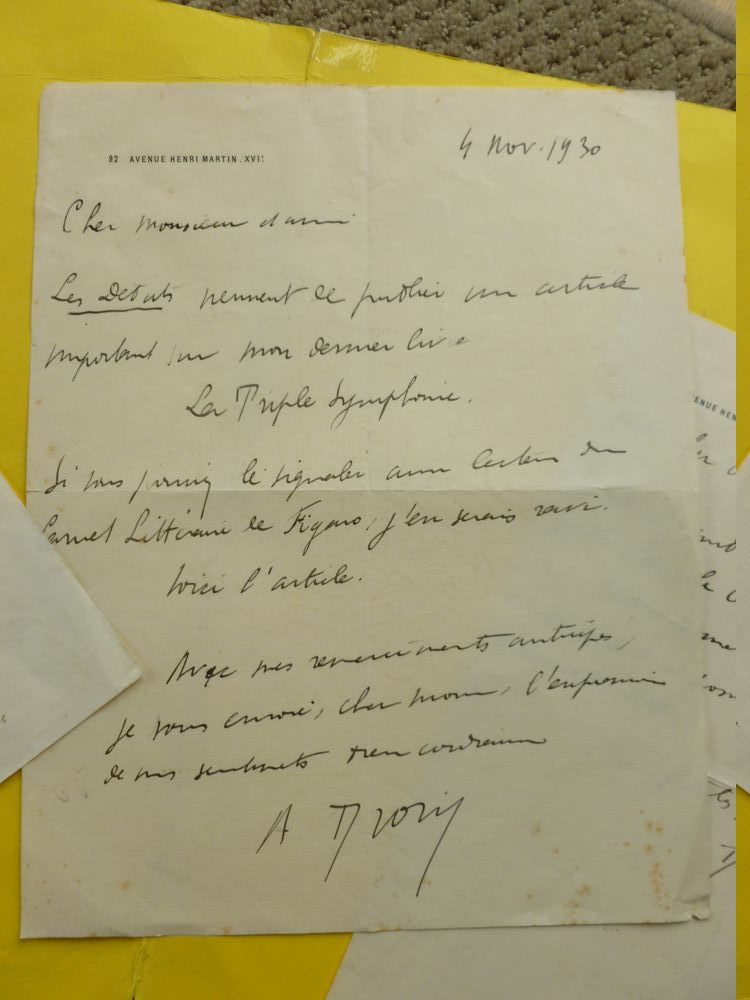 92 AVENUE HENRI MARTIN. XVI!
4 Nov. 1930
Cher Monsieur et ami
Les Débats viennent de publier un article
important sur mon dernier livre
La Triple Symphonie.
Si vous pouviez le signaler aux lecteurs du
Carnet Littéraire le Figaro, j'en serais ravi.
Voici l'article.
Avec mes remerciements anticipés,
je vous envoie, cher Monsieur, l'expression
de mes sentiments bien cordiaux
A
ENUE HEN